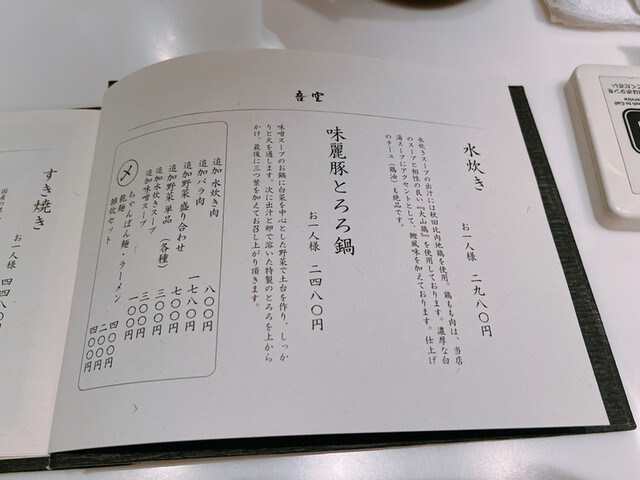 吾空
水炊き
お一人様 二九八〇円
水炊きスープの出汁には秋田比内地鶏を使用。鶏もも肉は、当店
のスープと相性の良い『大山鶏』を使用しております。濃厚な白
湯スープにアクセントとして、鰹風味を加えております。仕上げ
のチーユ(鶏油)も絶品です。
味麗豚とろろ鍋
お一人様 二四八〇円
味噌スープのお鍋に白菜を中心とした野菜で土台を作り、しっか
りと火を通します。次に出汁と卵で溶いた特製のとろろを上から
かけ、最後に三つ葉を加えてお召し上がり頂きます。
追加 水炊き肉 八〇〇円
追加 バラ肉 一七八〇円
追加 野菜盛り合わせ 七〇〇円
追加 野菜 単品(各種) 三〇〇円
追加 水炊きスープ 三〇〇円
追加 味噌スープ 一〇〇円
〆
ちゃんぽん麺・ラーメン 四〇〇円
乾麺 二〇〇円
雑炊セット 四〇〇円
すき焼き
お一人様 四四八〇円